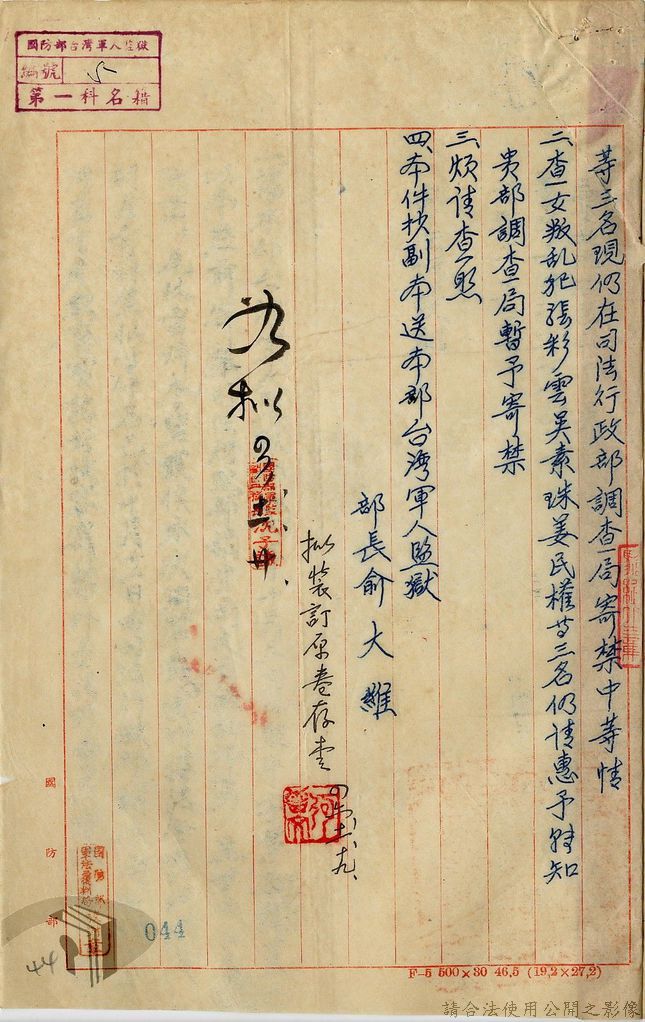 國防部台灣軍人監獄
編號
第一科名籍
等三名現仍在司法行政部調查局寄禁中等情
二、查女叛乱犯張彩雲吳素珠姜民權等三名仍请惠予轉知
贵部調查局暫予寄禁
三、烦请查照
四、本件抄副本送本部台湾軍人監獄
部長俞大維
拟装訂原卷存查
國防部
044
44
F-5 500×30 46.5 (19.2×27.2)
請合法使用公開之影像